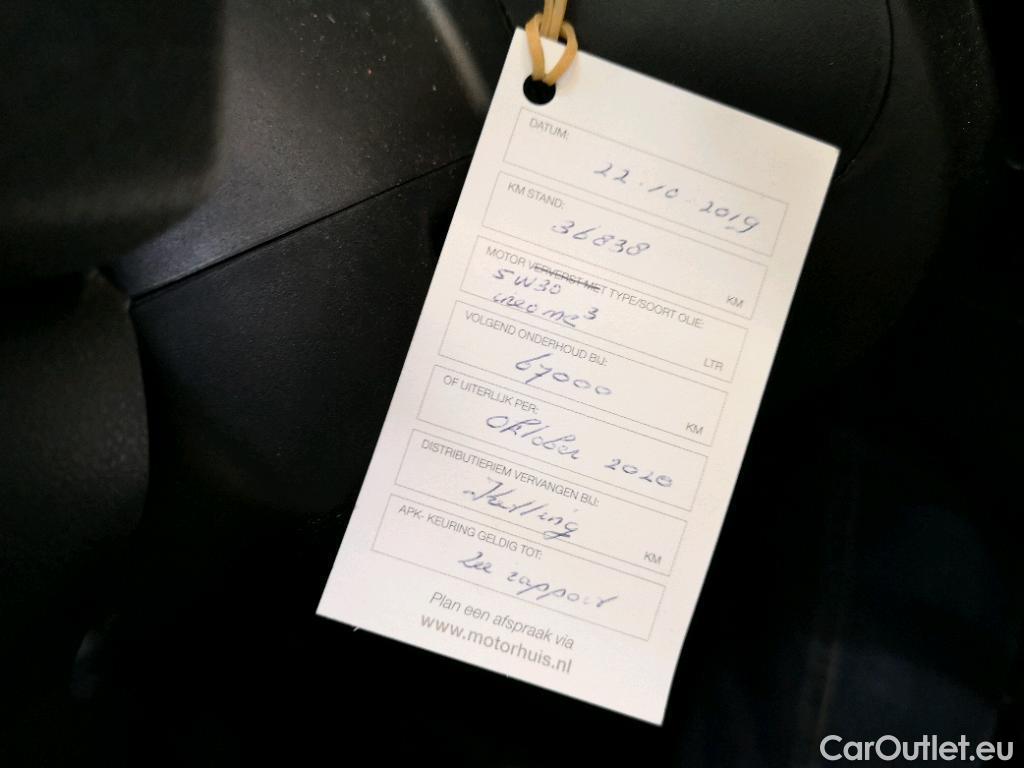 DATUM:
22-10-2019
KM STAND:
36838
KM
MOTOR VERVERST MET TYPE/SOORT OLIE:
5W30
ineo mc3
LTR
VOLGEND ONDERHOUD BIJ:
67000
KM
OF UITERLIJK PER:
oktober 2020
DISTRIBUTIERIEM VERVANGEN BIJ:
Ketting
KM
APK- KEURING GELDIG TOT:
Zie rapport
Plan een afspraak via
www.motorhuis.nl
CarOutlet.eu